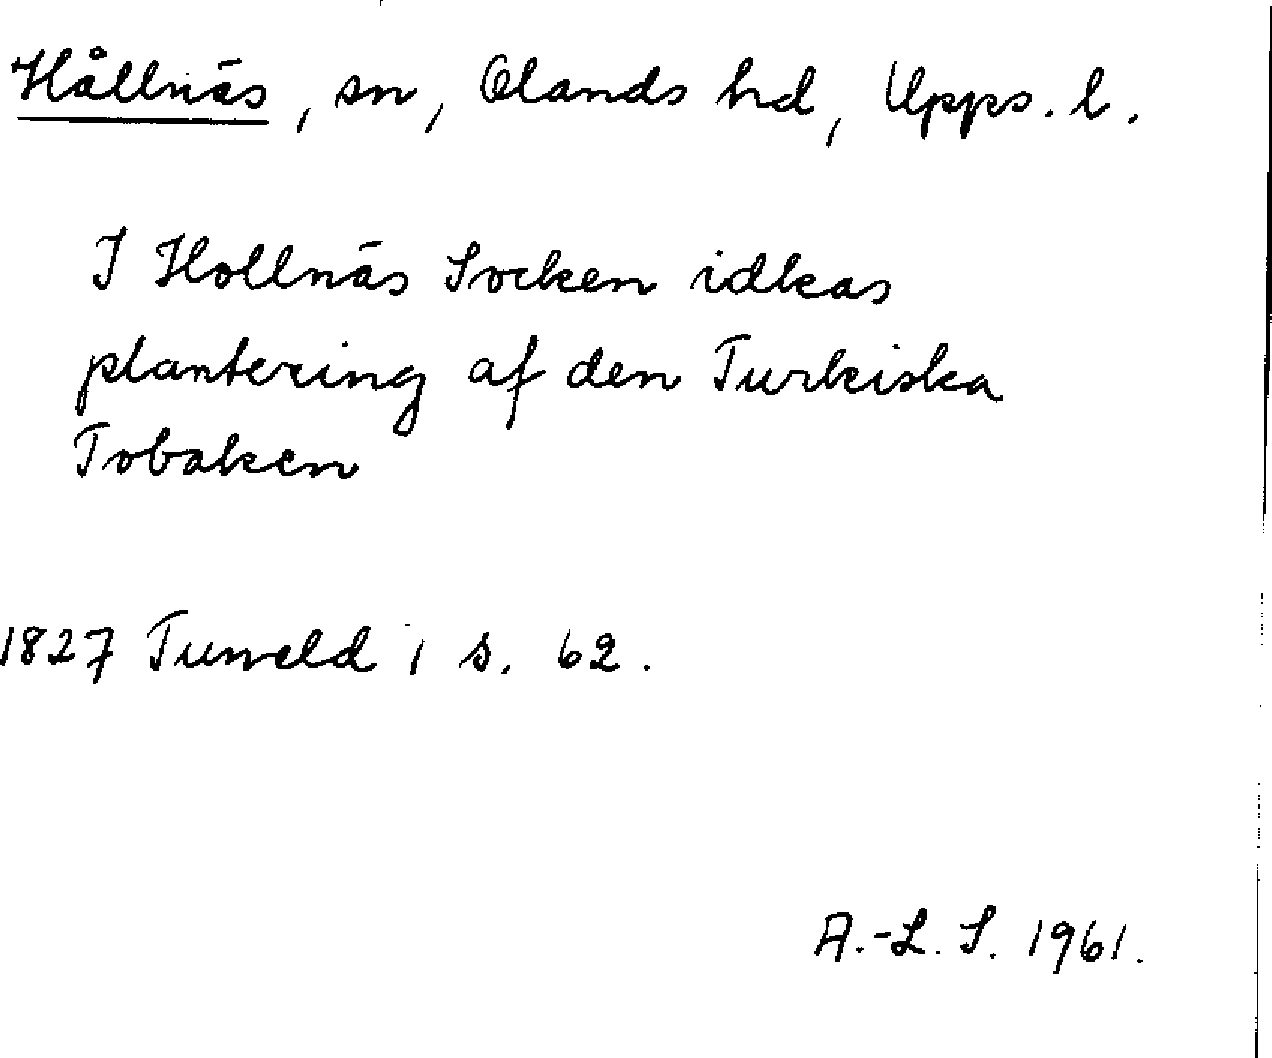 Hållnäs, sn, Olands hd, Upps. l.
I Hollnäs Socken idkas
plantering af den Turkiska
Tobaken
1827 Tuneld 1 s. 62.
A.-L. S. 1961.